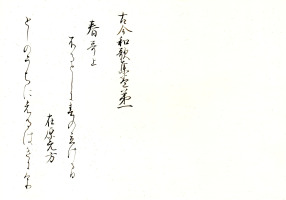 古今和歌集巻第一
春哥上
ふるとしに春のたちける日
在原元方
としのうちに